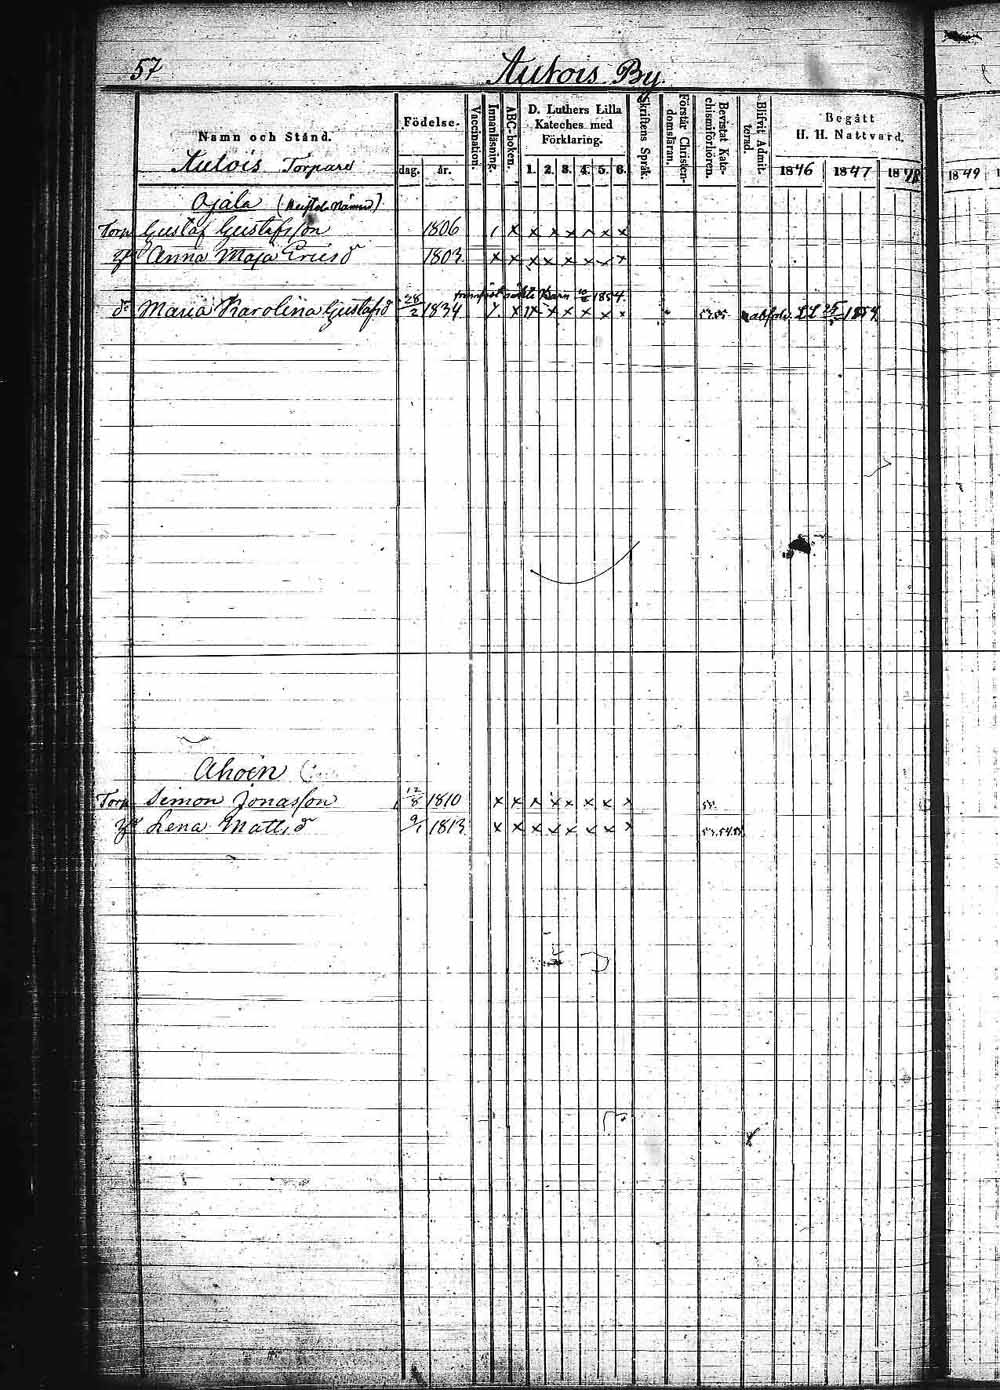 57
Autois By
Namn och Stånd.
Födelse-
dag. år.
Vaccination.
Innanläsning.
ABC-boken.
D. Luthers Lilla
Kateches med
Förklaring.
1. 2. 3. 4. 5. 6.
Skriftens Språk.
Förstår Christen-
domsläran.
Bevistat Kate-
chismiförhören.
Blifvit Admit-
terad.
Begått
H. H. Nattvard.
1846 1847 1848 1849
Autois Torpare
Ojala
Torp Gustaf Gustafsson 1806 x x x x x x x
Anna Maja Ericsd 1803 x x x x x x x x
1854
dr Maria Karolina Gustafsd 28/2 1834 x x x x x x x 53.55. 1854
Ahoin
Torp Simon Jonasson 12/8 1810 x x x x x x x x
Lena Mattsd 9/1 1813 x x x x x x x x